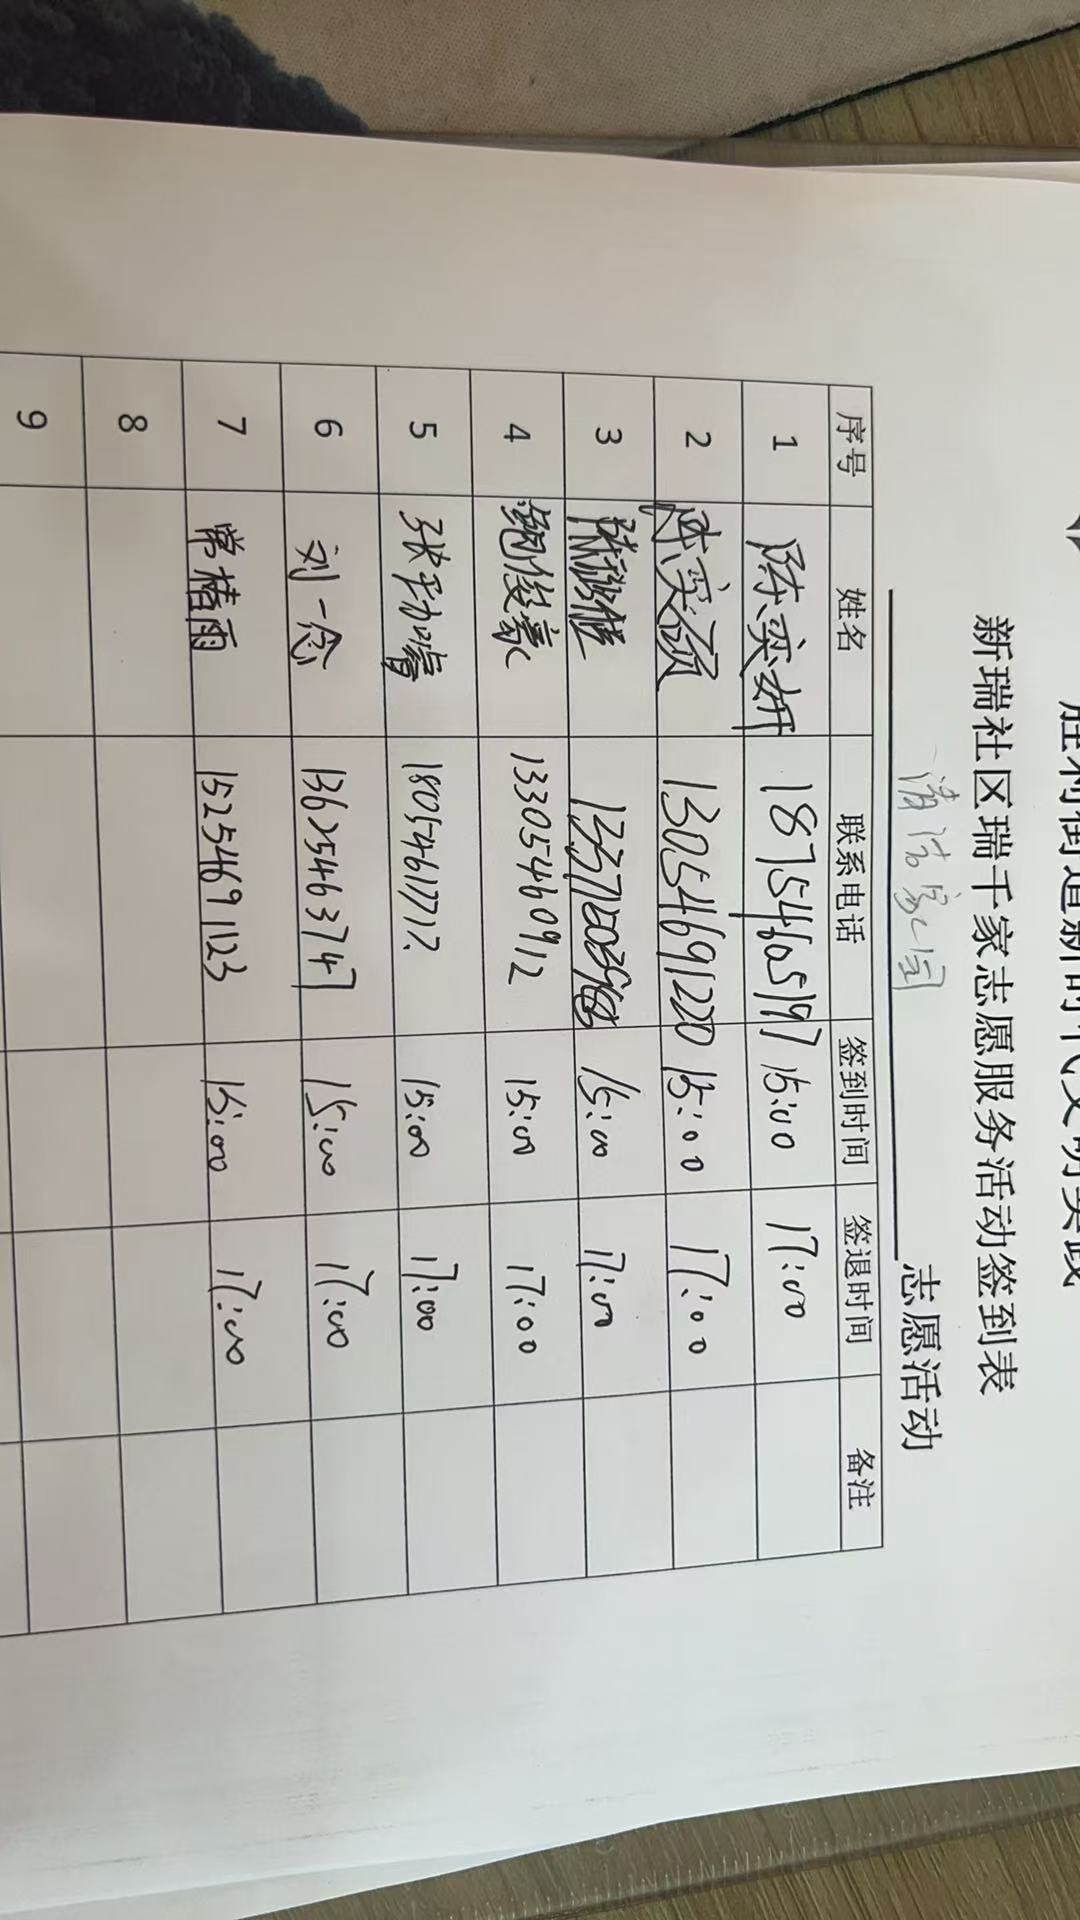 胜利街道新时代文明实践
新瑞社区瑞千家志愿服务活动签到表
清洁家园 志愿活动
序号 姓名 联系电话 签到时间 签退时间 备注
1 陈奕妍 18754605197 15:00 17:00
2 陈奕颂 13054691220 15:00 17:00
3 15:00 17:00
4 鲍俊豪 13305460912 15:00 17:00
5 张珈睿 18054617712 15:00 17:00
6 刘一念 13625463747 15:00 17:00
7 常椿雨 15254691123 15:00 17:00
8
9